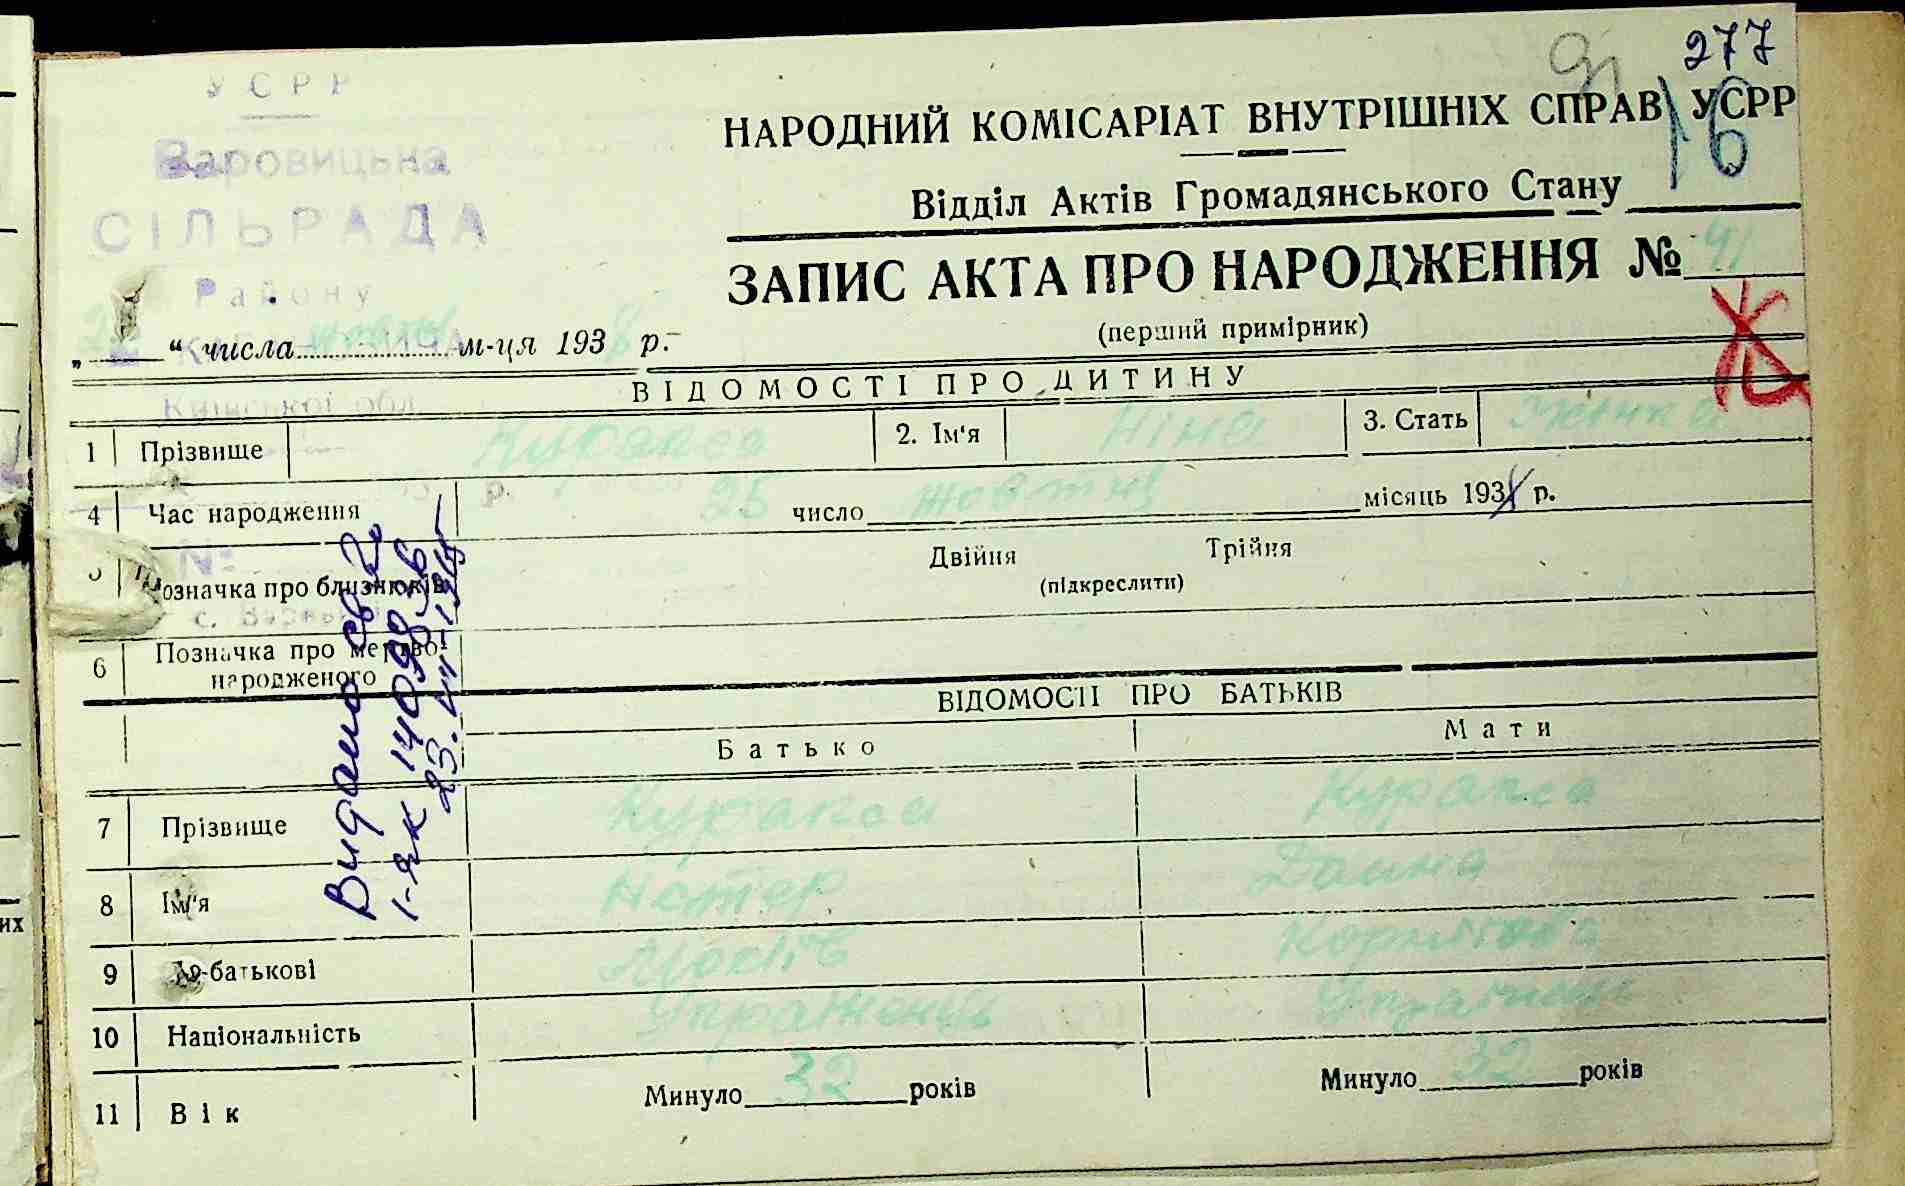 277
16
УСРР
Варовицьна
СІЛЬРАДА
Району
Київської обл.
НАРОДНИЙ КОМІСАРІАТ ВНУТРІШНІХ СПРАВ УСРР
Відділ Актів Громадянського Стану
ЗАПИС АКТА ПРО НАРОДЖЕННЯ № 41
(перший примірник)
„ “ числа жовтня м-ця 1938 р.
ВІДОМОСТІ ПРО ДИТИНУ
1 Прізвище Курапса 2. Ім'я Ніна 3. Стать Жінка
4 Час народження 25 число жовтня місяць 193 р.
5 Позначка про близнюків Двійня Трійня
(підкреслити)
6 Позначка про мертво-
народженого
ВІДОМОСТІ ПРО БАТЬКІВ
Батько Мати
7 Прізвище Курапса Курапса
8 Ім'я Нестер
9 По-батькові
10 Національність Українець
11 Вік Минуло 32 років Минуло 32 років
Видано
1-як 140986